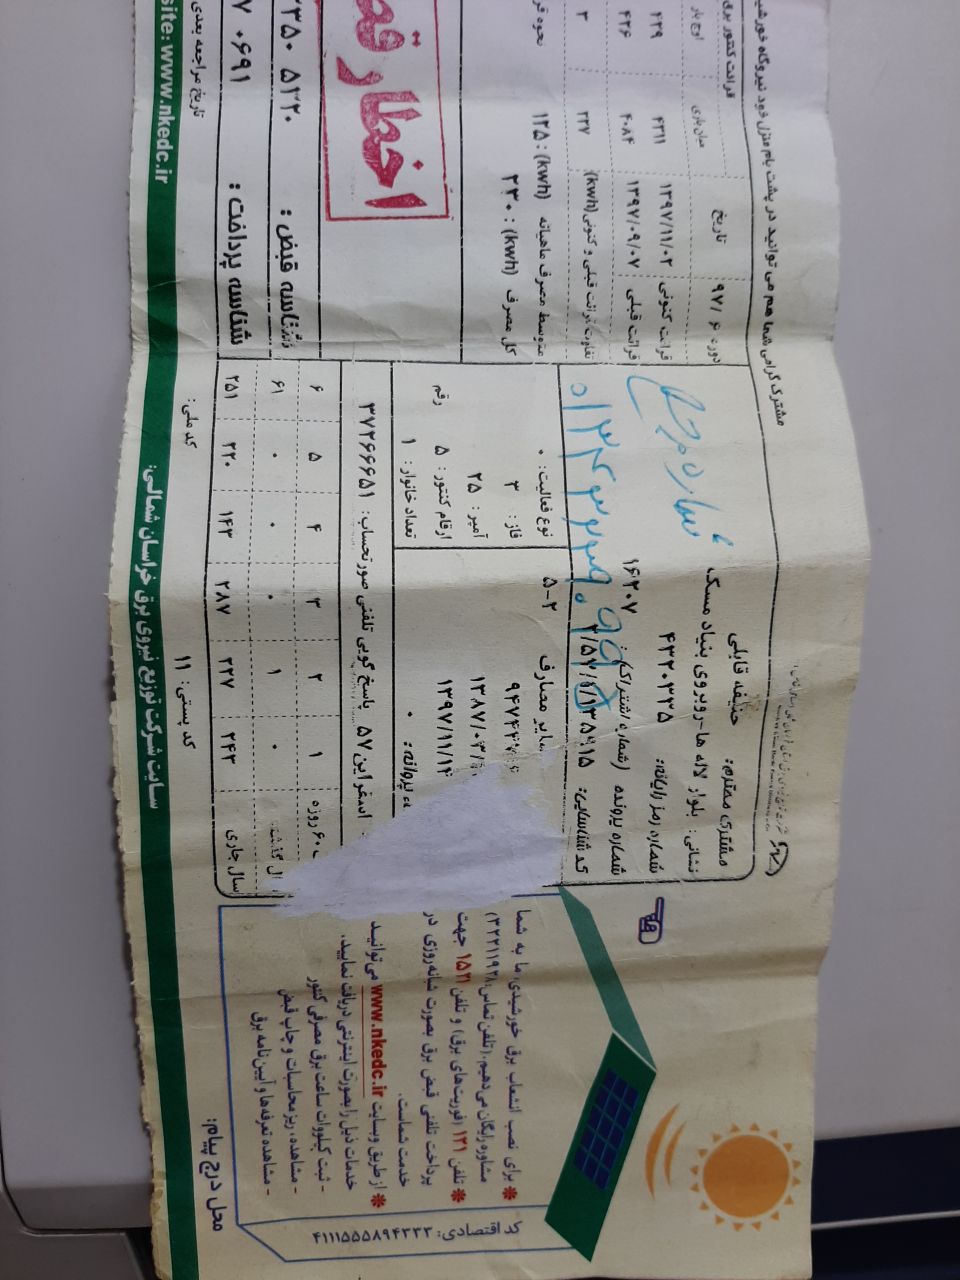 مشترک گرامی شما هم می توانید در پشت بام منزل خود نیروگاه خورشیدی
مشتری محترم: حنیفه قابلی
نشانی: بلوار لاله ها-روبروی بنیاد مسکن
شماره رمز رایانه: ۴۳۲۰۳۳۵
شماره پرونده (شماره اشتراک): ۱۶۲۰۷
کد شناسایی:
سایر مصارف ۲-۵
۱۳۸۷/۰۳/
۱۳۹۷/۱۱/۱۴
پروانه: ۰
نوع فعالیت: ۰
فاز: ۳
آمپر: ۲۵
ارقام کنتور: ۵ رقم
تعداد خانوار: ۱
شماره
دوره ۹۷/۶ تاریخ میان باری اوج بار
قرائت کنونی ۱۳۹۷/۱۱/۰۲ ۴۳۱۱ ۴۲۹
قرائت قبلی ۱۳۹۷/۰۹/۰۷ ۴۰۸۴ ۴۲۶
تفاوت قرائت قبلی و کنونی(kwh) ۲۲۷ ۳
متوسط مصرف ماهیانه (kwh): ۱۲۵
کل مصرف (kwh): ۲۳۰
اخطار
پاسخ گویی تلفنی صورتحساب: ۳۷۲۶۶۶۵۱
۶۰ روزه ۱ ۲ ۳ ۴ ۵ ۶
سال گذشته ۰ ۱ ۰ ۰ ۰ ۶۱
سال جاری ۲۴۳ ۲۲۷ ۲۸۷ ۱۴۳ ۲۲۰ ۲۵۱
شناسه قبض:
شناسه پرداخت:
کد پستی: ۱۱ کد ملی:
تاریخ مراجعه بعدی
سایت شرکت توزیع نیروی برق خراسان شمالی:
site: www.nkedc.ir
* برای نصب انشعاب برق خورشیدی، ما به شما
مشاوره رایگان می‌دهیم.(تلفن تماس:۳۲۲۱۱۹۲۸)
* تلفن ۱۲۱ (فوریت‌های برق) و تلفن ۱۵۲۱ جهت
پرداخت تلفنی قبض برق بصورت شبانه‌روزی در
خدمت شماست.
* از طریق وبسایت www.nkedc.ir می‌توانید
خدمات ذیل را بصورت اینترنتی دریافت نمایید.
- ثبت کیلووات ساعت برق مصرفی کنتور
- مشاهده، ریز محاسبات و چاپ قبض
- مشاهده تعرفه‌ها و آیین‌نامه برق
کد اقتصادی: ۴۱۱۱۵۵۵۸۹۴۳۳۳
محل درج پیام: